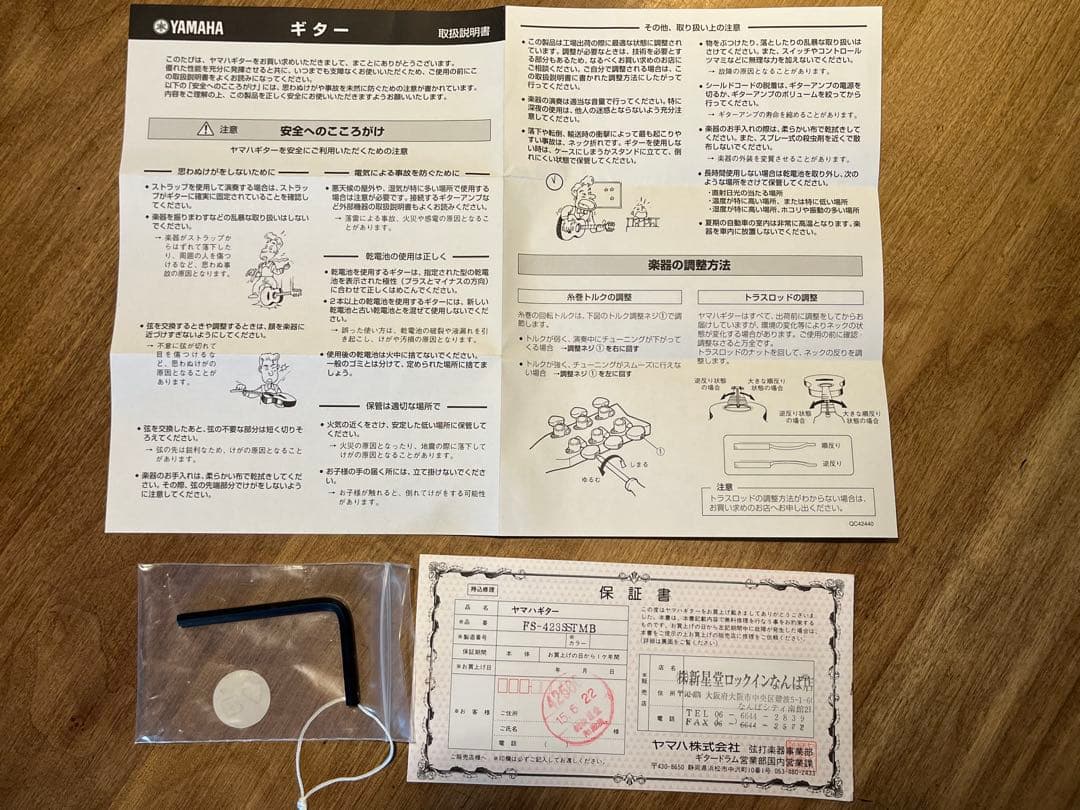 YAMAHA
ギター
取扱説明書
このたびは、ヤマハギターをお買い求めいただきまして、まことにありがとうございます。
優れた性能を充分に発揮させると共に、いつまでも支障なくお使いいただくため、ご使用の前にこ
の取扱説明書をよくお読みになってください。
以下の「安全へのこころがけ」には、思わぬけがや事故を未然に防ぐための注意が書かれています。
内容をご理解の上、この製品を正しく安全にお使いいただきますようお願いいたします。
注意 安全へのこころがけ
ヤマハギターを安全にご利用いただくための注意
思わぬけがをしないために
• ストラップを使用して演奏する場合は、ストラッ
プがギターに確実に固定されていることを確認し
てください。
• 楽器を振りまわすなどの乱暴な取り扱いはしない
でください。
→ 楽器がストラップか
らはずれて落下した
り、周囲の人を傷つ
けるなど、思わぬ事
故の原因となります。
• 弦を交換するときや調整するときは、顔を楽器に
近づけすぎないようにしてください。
→ 不意に弦が切れて
目を傷つけるな
ど、思わぬけがの
原因となることが
あります。
• 弦を交換したあと、弦の不要な部分は短く切りそ
ろえてください。
→ 弦の先は鋭利なため、けがの原因となること
があります。
• 楽器のお手入れは、柔らかい布で乾拭きしてくだ
さい。その際、弦の先端部分でけがをしないよう
に注意してください。
電気による事故を防ぐために
• 悪天候の屋外や、湿気が特に多い場所で使用する
場合は注意が必要です。接続するギターアンプな
ど外部機器の取扱説明書もよくお読みください。
→ 落雷による事故、火災や感電の原因となるこ
とがあります。
乾電池の使用は正しく
• 乾電池を使用するギターは、指定された型の乾電
池を表示された極性(プラスとマイナスの方向)
に合わせて正しくはめこんでください。
• 2本以上の乾電池を使用するギターには、新しい
乾電池と古い乾電池とを混ぜて使用しないでくだ
さい。
→ 誤った使い方は、乾電池の破裂や液漏れを引
き起こし、けがや汚損の原因となります。
• 使用後の乾電池は火中に捨てないでください。
一般のゴミとは分けて、定められた場所に捨てま
しょう。
保管は適切な場所で
• 火気の近くをさけ、安定した低い場所に保管して
ください。
→ 火災の原因となったり、地震の際に落下して
けがの原因となることがあります。
• お子様の手の届く所には、立て掛けないでくださ
い。
→ お子様が触れると、倒れてけがをする可能性
があります。
その他、取り扱い上の注意
• この製品は工場出荷の際に最適な状態に調整され
ています。調整が必要なときは、技術を必要とす
る部分もあるため、なるべくお買い求めのお店に
ご相談ください。ご自分で調整される場合は、こ
の取扱説明書に書かれた調整方法にしたがって
行ってください。
• 楽器の演奏は適当な音量で行ってください。特に
深夜の使用は、他人の迷惑とならないよう充分注
意してください。
• 落下や転倒、輸送時の衝撃によって最も起こりや
すい事故は、ネック折れです。ギターを使用しな
い時は、ケースにしまうかスタンドに立てて、倒
れにくい状態で保管してください。
• 物をぶつけたり、落としたりの乱暴な取り扱いは
さけてください。また、スイッチやコントロール
ツマミなどに無理な力を加えないでください。
→ 故障の原因となることがあります。
• シールドコードの脱着は、ギターアンプの電源を
切るか、ギターアンプのボリュームを絞ってから
行ってください。
→ ギターアンプの寿命を縮めることがあります。
• 楽器のお手入れの際は、柔らかい布で乾拭きして
ください。また、スプレー式の殺虫剤を近くで散
布しないでください。
→ 楽器の外装を変質させることがあります。
• 長時間使用しない場合は乾電池を取り外し、次の
ような場所をさけて保管してください。
・直射日光の当たる場所
・温度が特に高い場所、または特に低い場所
・湿度が特に高い場所、ホコリや振動の多い場所
• 夏期の自動車の室内は非常に高温となります。楽
器を車内に放置しないでください。
楽器の調整方法
糸巻トルクの調整
糸巻の回転トルクは、下図のトルク調整ネジ①で調
節します。
• トルクが弱く、演奏中にチューニングが下がって
くる場合 →調整ネジ①を右に回す
• トルクが強く、チューニングがスムーズに行えな
い場合 →調整ネジ①を左に回す
①
しまる
ゆるむ
トラスロッドの調整
ヤマハギターはすべて、出荷前に調整をしてからお
届けしていますが、環境の変化等によりネックの状
態が変化する場合があります。ご使用の前に確認・
調整なさると万全です。
トラスロッドのナットを回して、ネックの反りを調
整します。
逆反り状態
の場合
大きな順反り
状態の場合
逆反り状態
の場合
大きな順反り
状態の場合
順反り
逆反り
注意
トラスロッドの調整方法がわからない場合は、
お買い求めのお店へお申し出ください。
QC42440
持込修理
保証書
品名 ヤマハギター
※品番 FS-423SSTMB
※製造番号
※カラー
保証期間 本体 お買上げの日から1ケ年間
※お買上げ日 年 月 日
※お客様
ご住所
ご氏名 様
電話 ( )
15.6.22
ご販売店様へ ※印欄は必ずご記入してお渡しください。
この度はヤマハギターをお買上げ戴きましてありがとうございまし
た。本書は、本書記載内容で無料修理を行なう事をお約束する
ものです。お買上げの日から左記期間中に故障が発生した場合は、
本書をご提示の上お買上げの販売店に修理をご依頼ください。
(詳細は裏面をご覧ください)
※販売店
店名 ㈱新星堂ロックインなんば店
住所 大阪府大阪市中央区難波5-1-60
なんばシティ南館2F
電話 TEL 06-6644-2839
FAX 06-6644-2572
ヤマハ株式会社 弦打楽器事業部
ギタードラム営業部国内営業課
〒430-8650 静岡県浜松市中沢町10番1号 053-460-2433